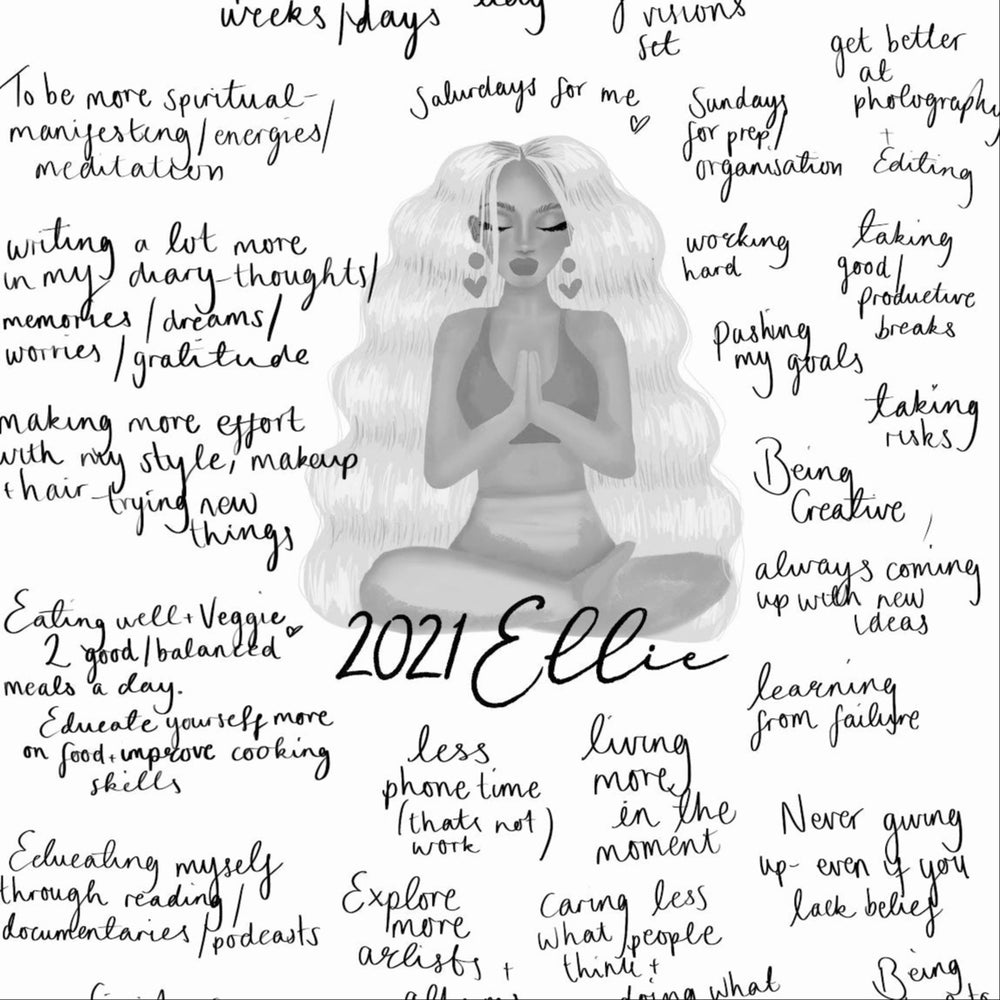 weeks/days
visions
set
get better
at
photography
+
Editing
To be more spiritual-
manifesting/energies/
meditation
Saturdays for me
Sundays
for prep/
organisation
writing a lot more
in my diary-thoughts/
memories/dreams/
worries/gratitude
working
hard
taking
good/
productive
breaks
pushing
my goals
making more effort
with my style, makeup
+hair-trying new
things
taking
risks
Being
Creative
always coming
up with new
ideas
Eating well+Veggie
2 good/balanced
meals a day.
Educate yourself more
on food+improve cooking
skills
2021 Ellie
learning
from failure
less
phone time
(thats not)
work
living
more
in the
moment
Never giving
up- even if you
lack belief
Educating myself
through reading/
documentaries/podcasts
Explore
more
artists +
caring less
what people
think +
doing what
Being